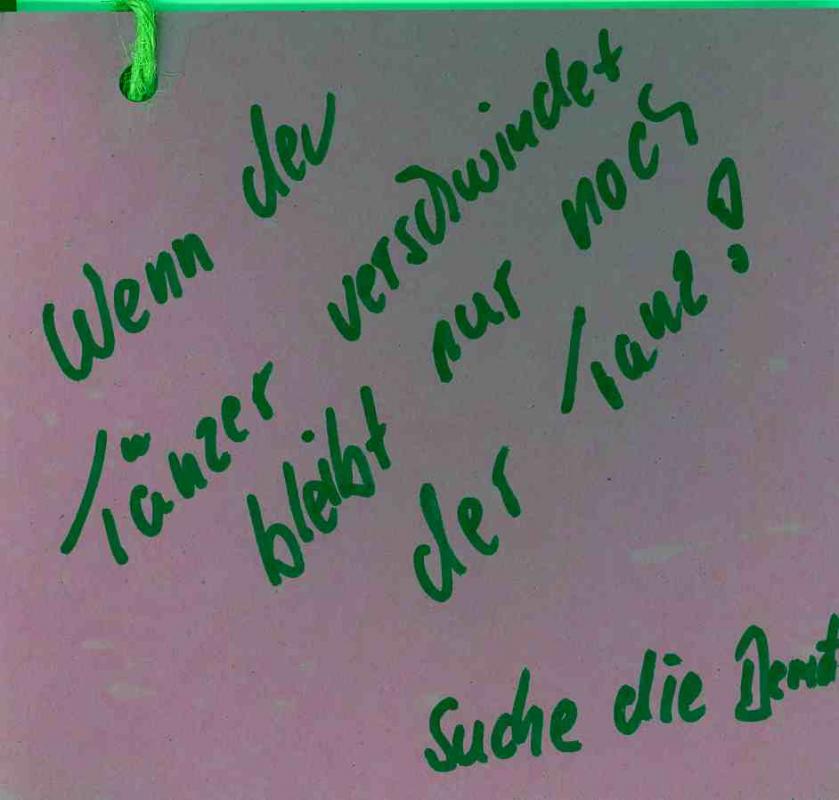 Wenn der
Tänzer verschwindet
bleibt nur noch
der Tanz!
Suche die Demut